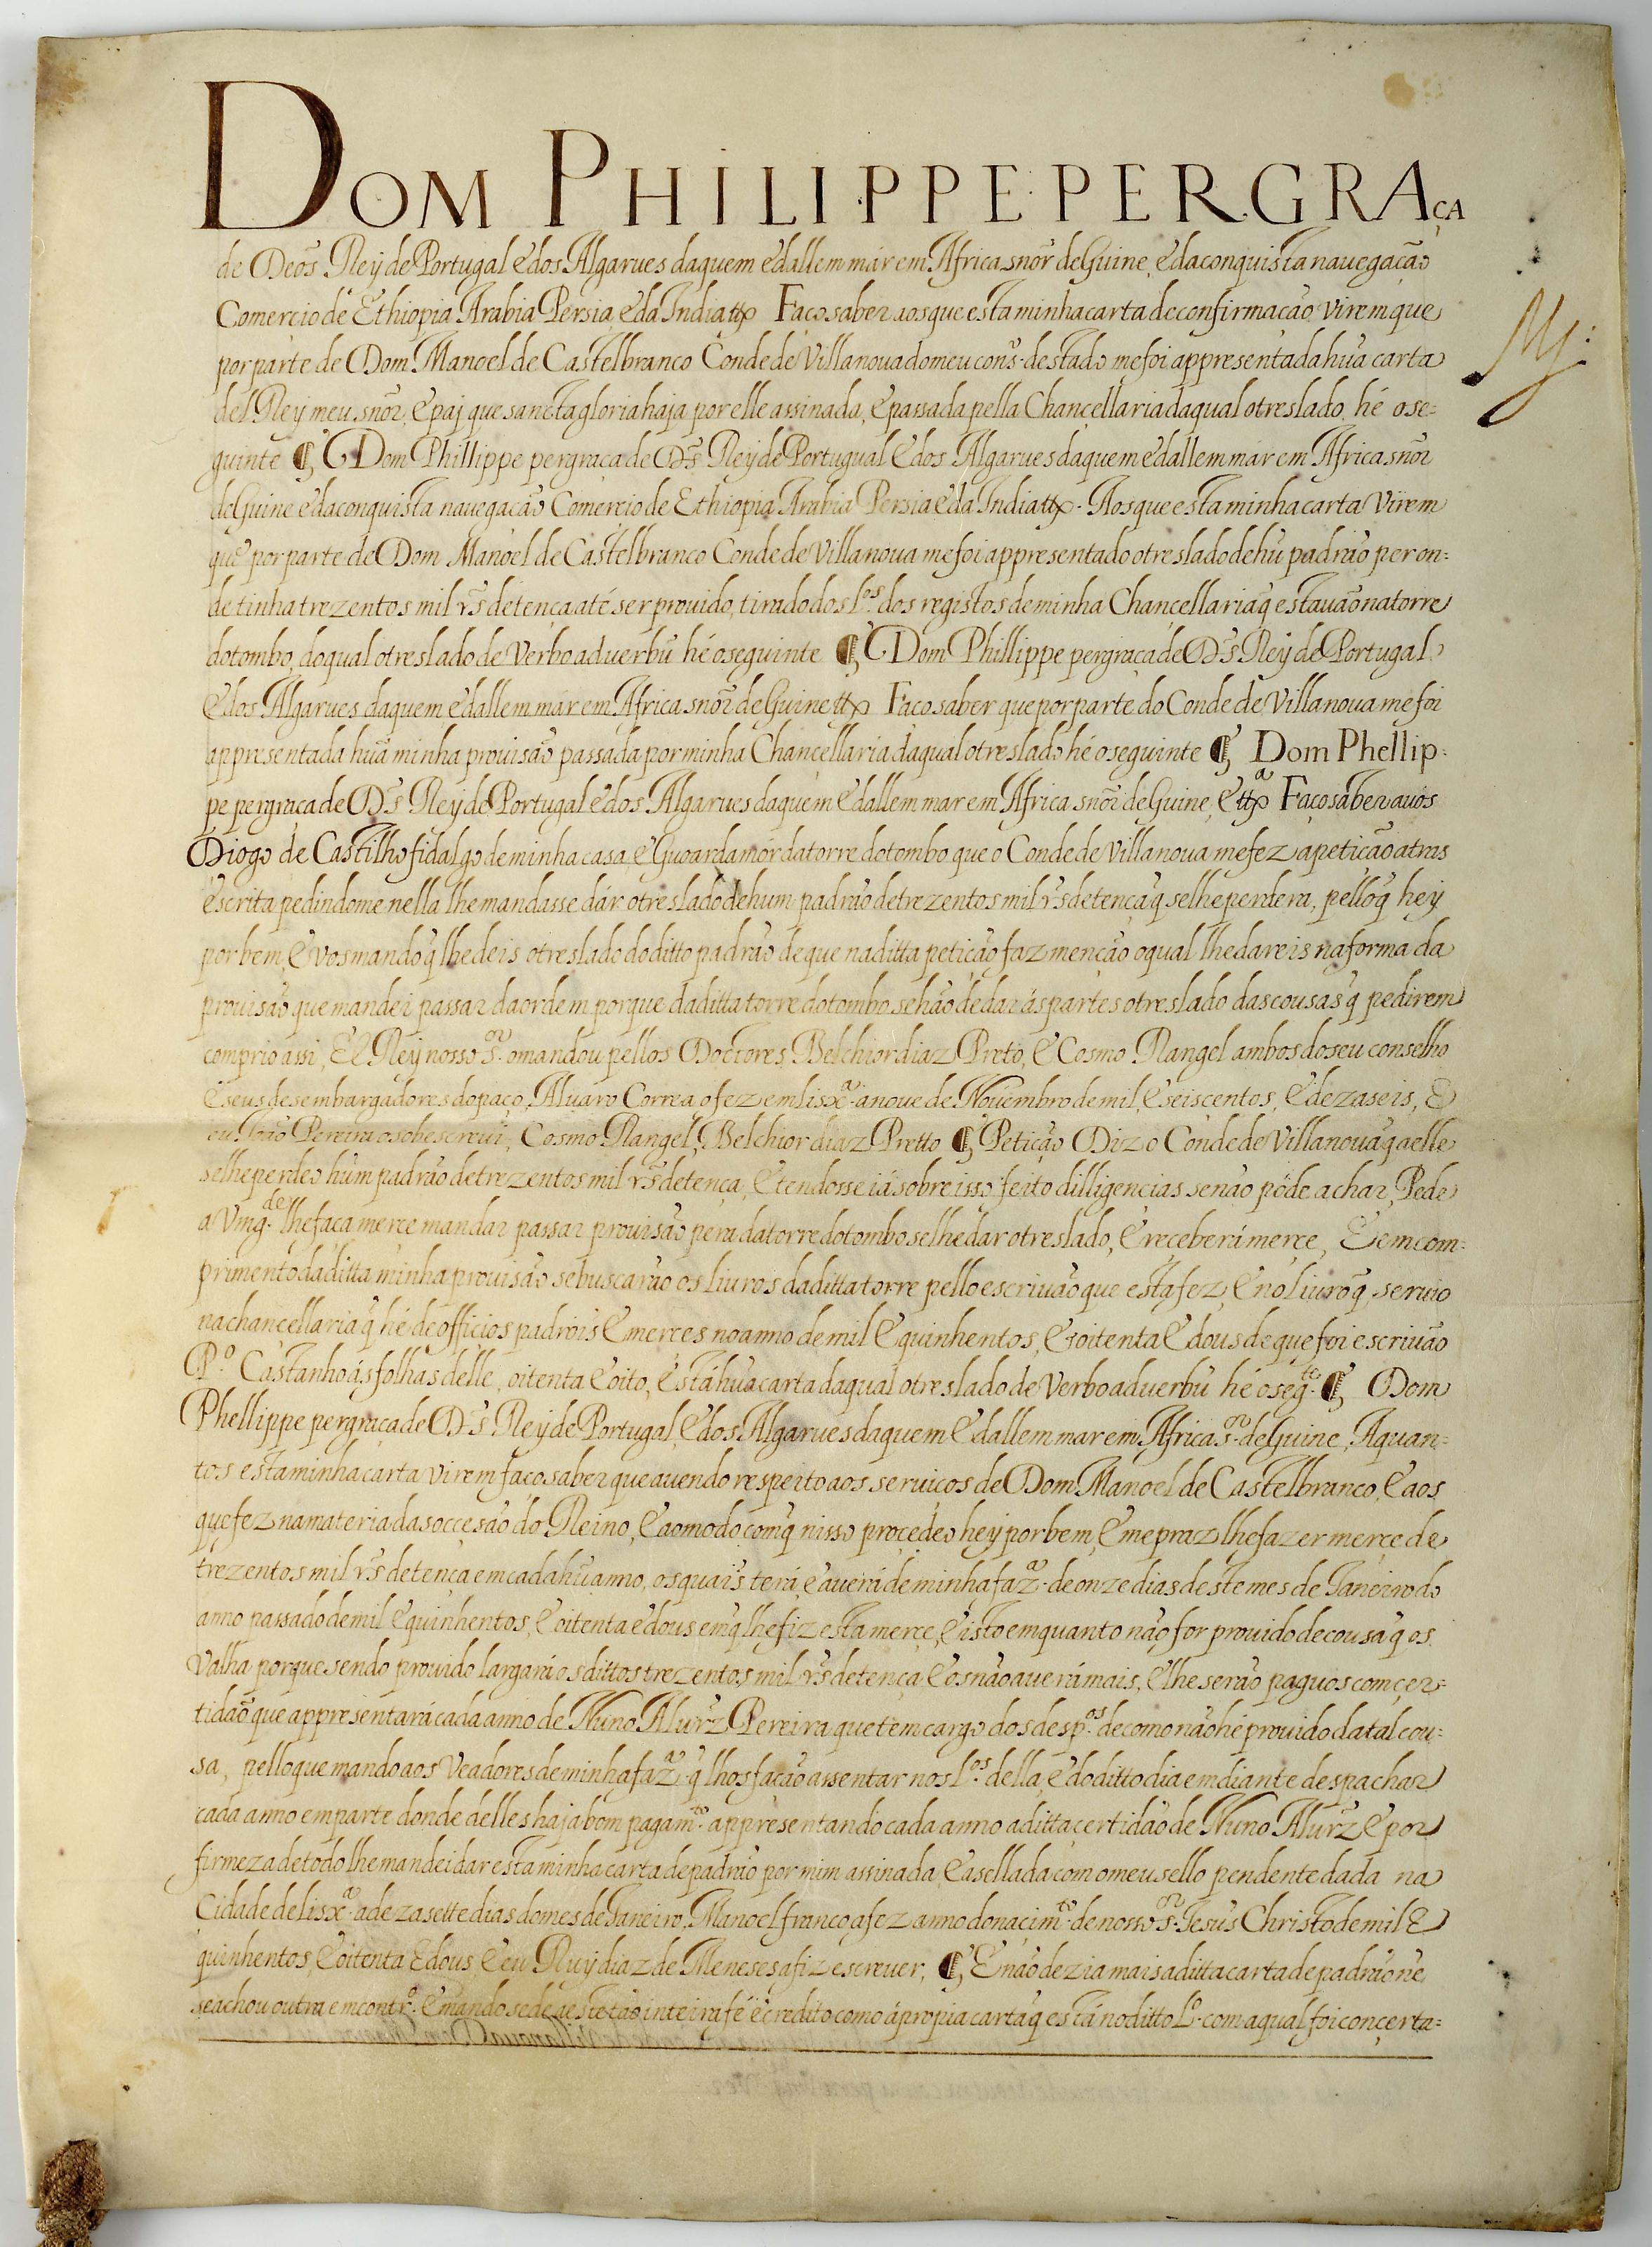 DOM PHILIPPE PER GRAÇA
de Deõs Rey de Portugal e dos Algarues daquem e dallem mar em Africa snõr de Guine, e da conquista nauegação
Comercio de Ethiopia Arabia Persia e da India ttꝭ Faço saber aos que esta minha carta de confirmação virem que
por parte de Dom Manoel de Castelbranco Conde de Villa noua do meu cons. destado me foi appresentada hũa carta
del Rey meu snõr, e paj que sancta gloria haja por elle assinada, e passada pella Chançellaria da qual o treslado hé o se=
guinte ¶ Dom Phillippe per graça de Ds̃ Rey de Portugual e dos Algarues daquem e dallem mar em Africa snõr
de Guine e da conquista nauegação Comercio de Ethiopia Arabia Persia e da India ttꝭ. Aos que esta minha carta virem
que por parte de Dom Manoel de Castelbranco Conde de Villa noua me foi appresentado o treslado de hũ padrão per on=
de tinha trezentos mil rs̃ de tença até ser prouido, tirado dos l.os dos registos de minha Chançellaria q̃ estauão na torre
do tombo, do qual o treslado de verbo aduerbũ hé o seguinte ¶ Dom Phillippe per graça de Ds̃ Rey de Portugal
e dos Algarues daquem e dallem mar em Africa snõr de Guine ttꝭ Faço saber que por parte do Conde de Villa noua me foi
appresentada hũa minha prouisão passada por minha Chançellaria da qual o treslado hé o seguinte ¶ Dom Phellip=
pe per graça de Ds̃ Rey de Portugal e dos Algarues daquem e dallem mar em Africa snõr de Guine, e ttꝭa Faço saber a uós
Diogo de Castilho fidalgo de minha casa, e Guoarda mór da torre do tombo que o Conde de Villa noua me fez a petição atras
escrita pedindome nella lhe mandasse dár o treslado de hum padrão de trezentos mil rs̃ de tença q̃ se lhe perdera, pello q̃ hey
por bem, e vos mando q̃ lhe deis o treslado do ditto padrão de que na ditta petição faz menção o qual lhe dareis na forma da
prouisão que mandei passar da ordem porque da ditta torre do tombo se hão de dar ás partes o treslado das cousas q̃ pedirem
comprio assi, El Rey nosso s.or o mandou pellos Doctores Belchior diaz Preto, e Cosmo Rangel ambos do seu conselho
e seus desembargadores do paço, Aluaro Correa o fez em lisx.a a noue de Nouembro de mil, e seiscentos, e dezaseis, E
eu João Pereira o sobescreui, Cosmo Rangel, Belchior diaz Pretto ¶ Petição Diz o Conde de Villa noua q̃ a elle
se lhe perdeo hum padrão de trezentos mil rs̃ de tença, e tendosse iá sobre isso feito dilligencias se não póde achar, Pede
a Vmg.de lhe faça merce mandar passar prouisão pera da torre do tombo se lhe dar o treslado, e receberá merçe, E em com=
primento da ditta minha prouisão se buscarão os liuros da ditta torre pello escriuão que esta fez, e no liuro q̃ seruio
na chancellaria q̃ hé de officios padrois e merces no anno de mil e quinhentos, e oitenta e dous de que foi escriuão
P.o Castanho ás folhas delle, oitenta e oito, está hũa carta da qual o treslado de verbo aduerbũ hé o seg.te ¶ Dom
Phellippe per graça de Ds̃ Rey de Portugal, e dos Algarues daquem e dallem mar em Africa s.or de Guine, A quan=
tos esta minha carta virem faço saber que auendo respeito aos seruiços de Dom Manoel de Castelbranco, e aos
que fez na materia da socçesão do Reino, e ao modo com q̃ nisso procedeo hey por bem, e me praz lhe fazer merçe de
trezentos mil rs̃ de tença em cada hũ anno, os quais terá e auerá de minha faz.a de onze dias deste mes de Ianeiro do
anno passado de mil e quinhentos, e oitenta e dous em q̃ lhe fiz esta merçe, e isto em quanto não for prouido de cousa q̃ os
valha porque sendo prouido largará os dittos trezentos mil rs̃ de tença e os não auerá mais, e lhe serão paguos com çer=
tidão que appresentará cada anno de Nuno Alurz̃ Pereira que tem cargo dos desp.os de como não hé prouido da tal cou=
sa, pello que mando aos Veadores de minha faz.a q̃ lhos fação assentar nos l.os della, e do ditto dia em diante despachar
cada anno em parte donde delles haja bom pagam.to appresentando cada anno a ditta çertidão de Nuno Alurz̃ e por
firmeza de todo lhe mandei dar esta minha carta de padrão por mim assinada, e asellada com o meu sello pendente dada na
Cidade de lisx.a a dezasette dias do mes de Ianeiro, Manoel franco a fez anno do naçim.to de nosso s.or Iesus Christo de mil E
quinhentos, e oitenta E dous, e eu Ruy diaz de Meneses a fiz escreuer, ¶ E não dezia mais a ditta carta de padrão ne
se achou outra em contr.o e mando se dê a este tão inteira fé e credito como á propia carta q̃ está no ditto L.o com a qual foi conçerta=